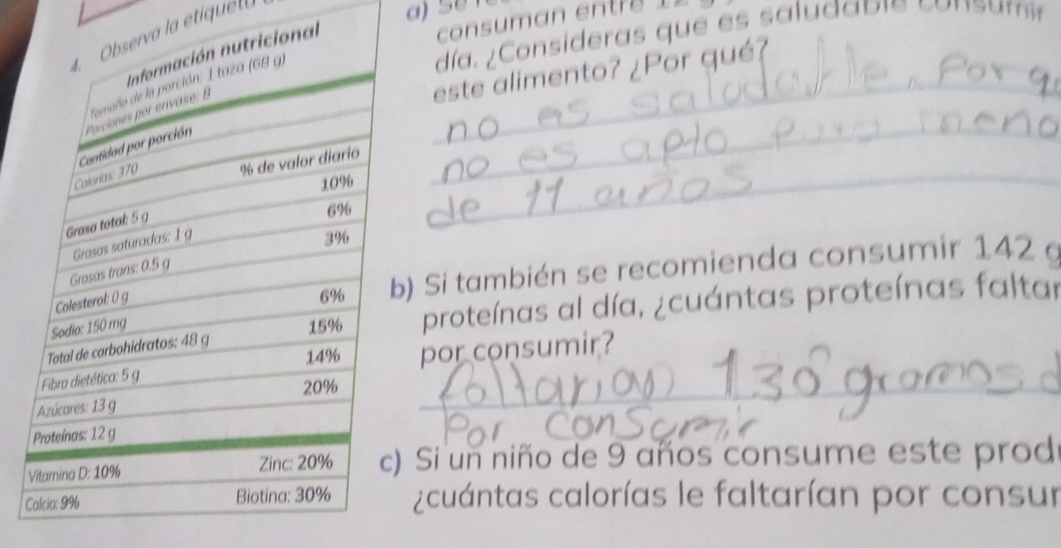 4. Observa la etiqueta
Información nutricional
Tamaño de la porción: 1 taza (68 g)
Porciones por envase: 8
Cantidad por porción
Calorías: 370
% de valor diario
Grasa total: 5 g 10%
Grasas saturadas: 1 g 6%
Grasas trans: 0.5 g 3%
Colesterol: 0 g
Sodio: 150 mg 6%
Total de carbohidratos: 48 g 15%
Fibra dietética: 5 g 14%
Azúcares: 13 g 20%
Proteínas: 12 g
Vitamina D: 10% Zinc: 20%
Calcio: 9% Biotina: 30%
a) Se
consuman entre
día. ¿Consideras que es saludable consumir
este alimento? ¿Por qué?
no es saludable, Por q
no es apto para meno
de 11 años
b) Si también se recomienda consumir 142 g
proteínas al día, ¿cuántas proteínas faltar
por consumir?
faltarian 130 gramos d
Por consumir
c) Si un niño de 9 años consume este prod
¿cuántas calorías le faltarían por consum